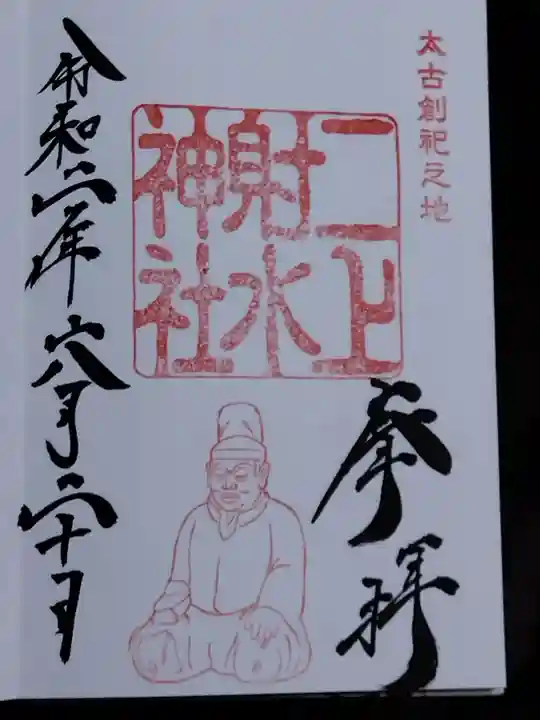 太古創祀之地
奉拝
二上
射水
神社
令和二年六月二十日